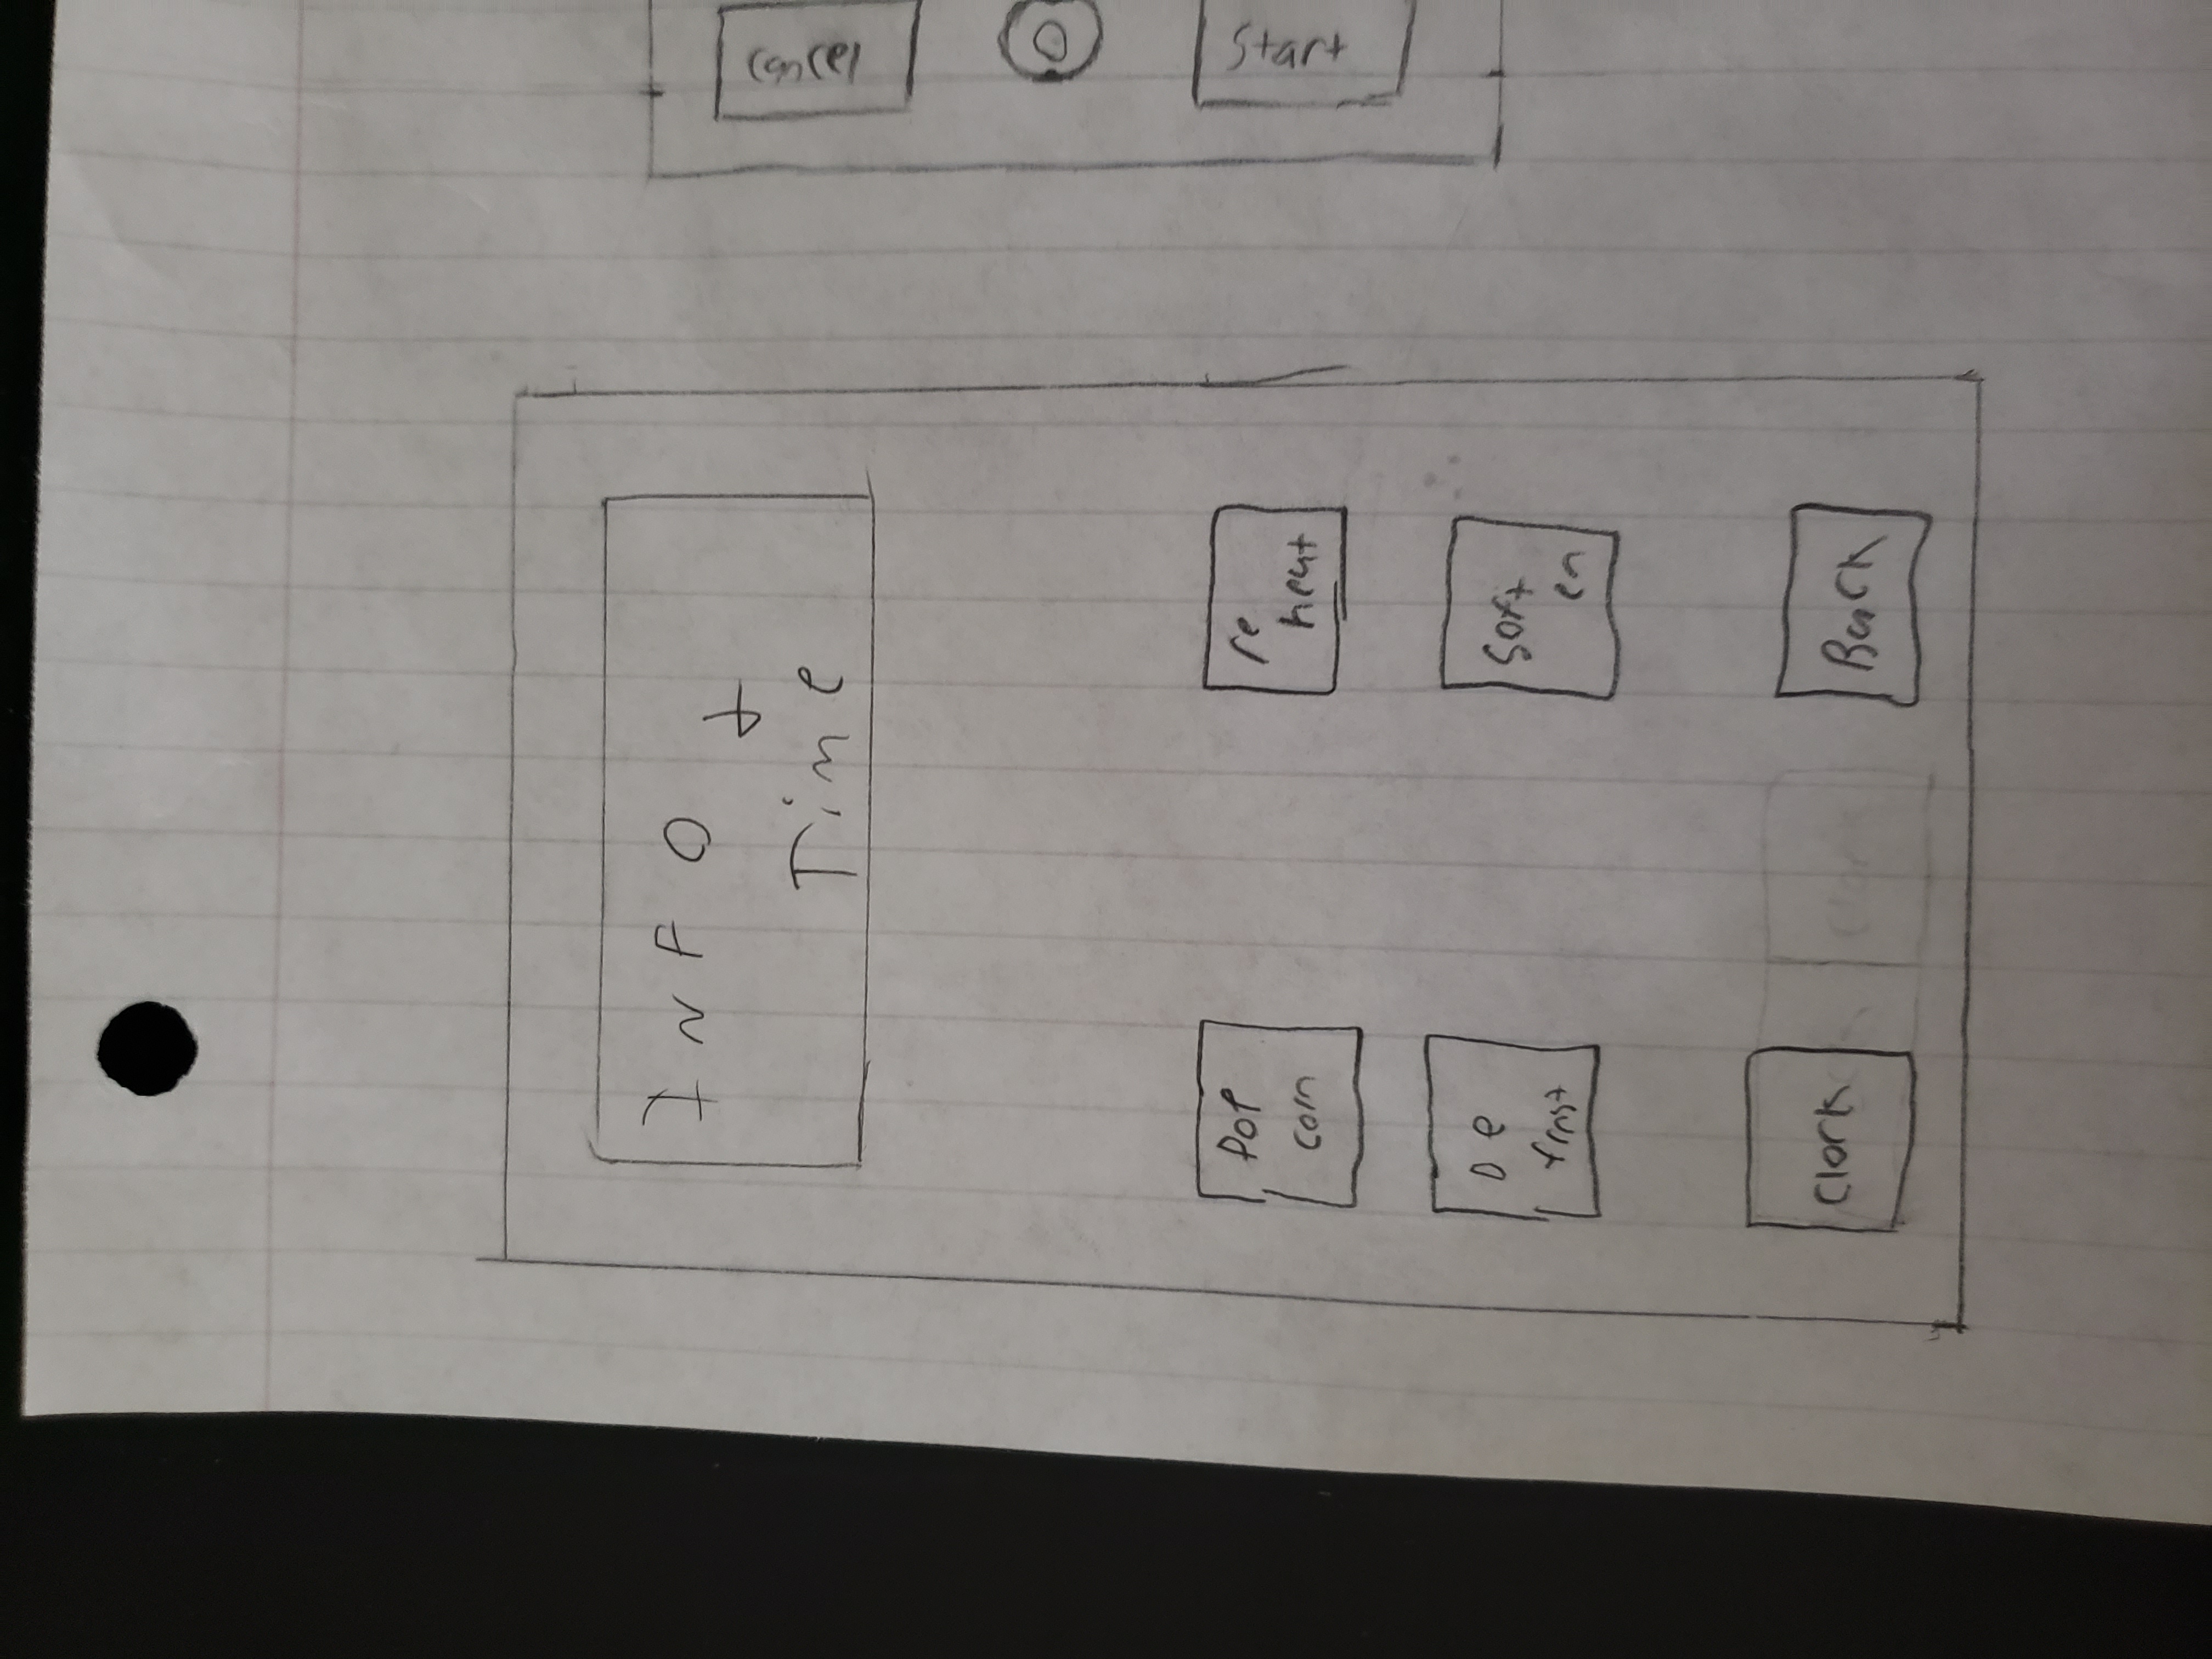 INFO
+
Time
Pop
corn
re
heat
De
frost
Soft
en
Clock
Back
Cancel
Start